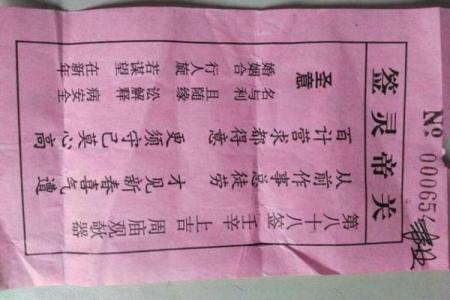 № 00065
签灵帝关
第八十八签 壬辛 上吉 周庙观欹器
从前作事总徒劳 才见新春喜气遭
百计营求都得意 更须守己莫心高
圣意
名与利 且随缘 讼解释 病安全
婚姻合 行人旋 若谋望 在新年